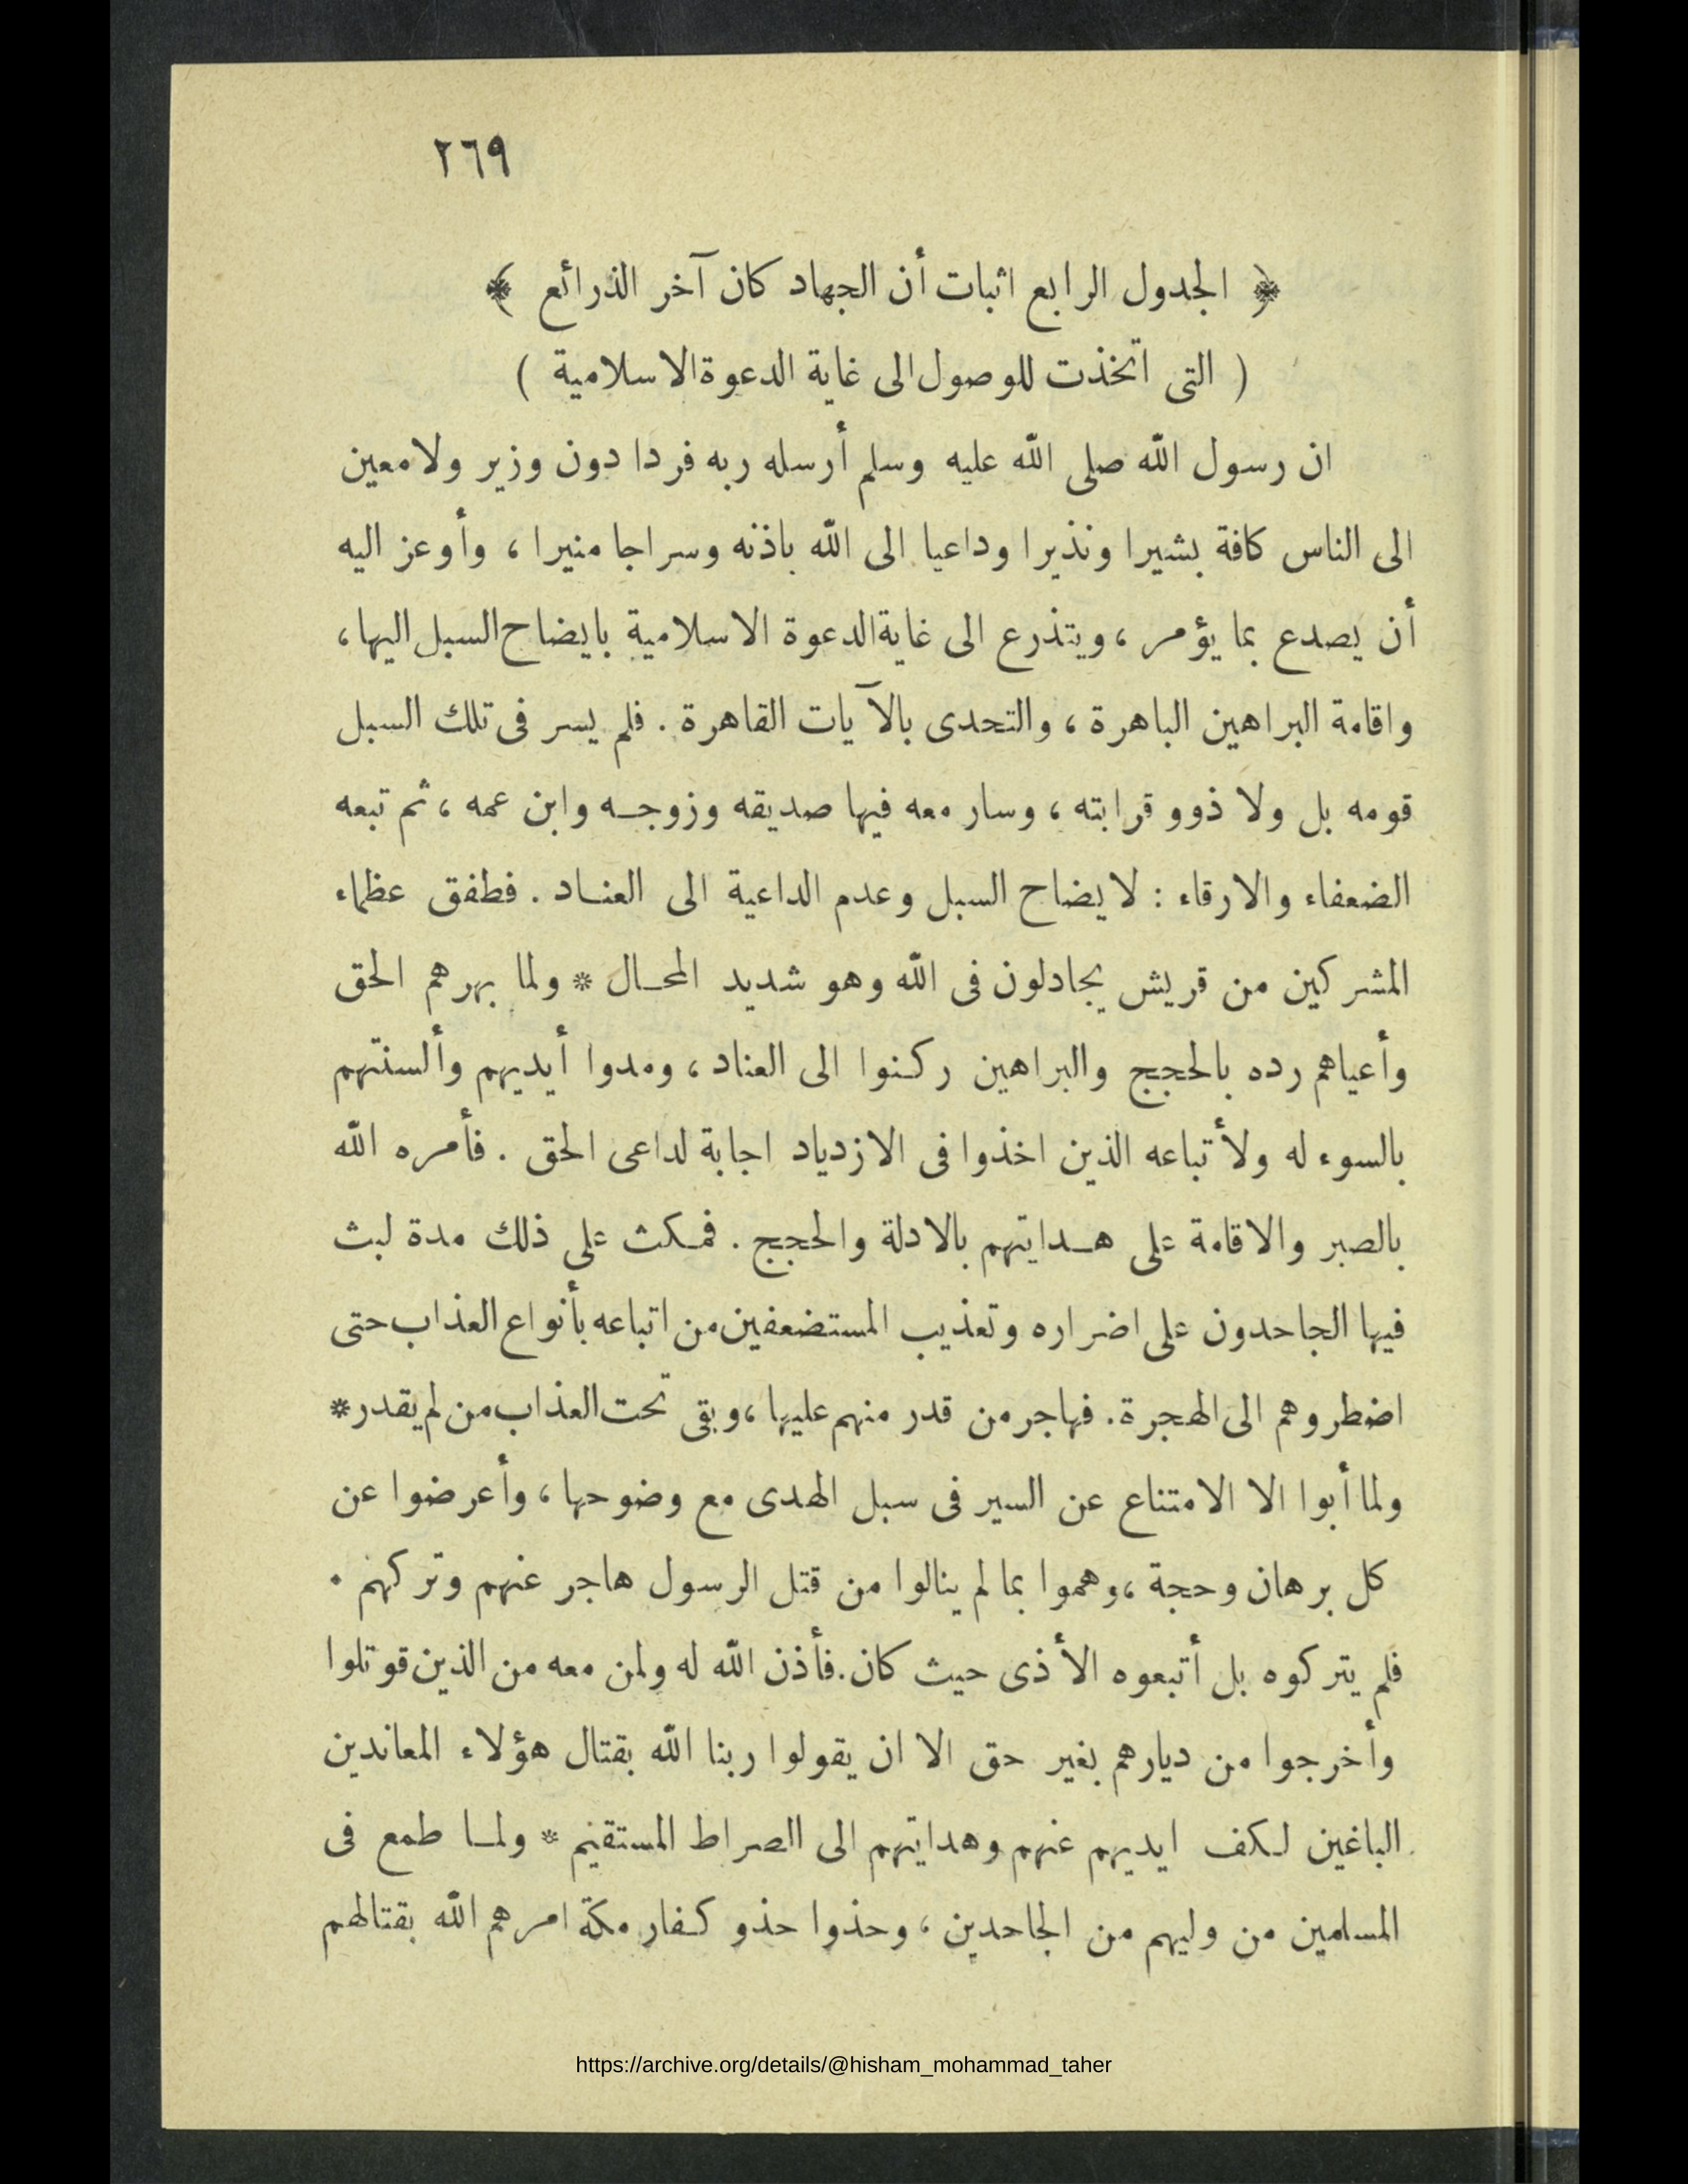 ٢٦٩
﴿ الجدول الرابع اثبات أن الجهاد كان آخر الذرائع ﴾
( التى اتخذت للوصول الى غاية الدعوة الاسلامية )
ان رسول الله صلى الله عليه وسلم أرسله ربه فردا دون وزير ولا معين
الى الناس كافة بشيرا ونذيرا وداعيا الى الله باذنه وسراجا منيرا ، وأوعز اليه
أن يصدع بما يؤمر ، ويتذرع الى غاية الدعوة الاسلامية بايضاح السبل اليها ،
واقامة البراهين الباهرة ، والتحدى بالآيات القاهرة . فلم يسر فى تلك السبل
قومه بل ولا ذوو قرابته ، وسار معه فيها صديقه وزوجه وابن عمه ، ثم تبعه
الضعفاء والارقاء : لايضاح السبل وعدم الداعية الى العناد . فطفق عظماء
المشركين من قريش يجادلون فى الله وهو شديد المحال * ولما بهرهم الحق
وأعياهم رده بالحجج والبراهين ركنوا الى العناد ، ومدوا أيديهم وألسنتهم
بالسوء له ولأتباعه الذين اخذوا فى الازدياد اجابة لداعى الحق . فأمره الله
بالصبر والاقامة على هدايتهم بالادلة والحجج . فمكث على ذلك مدة لبث
فيها الجاحدون على اضراره وتعذيب المستضعفين من اتباعه بأنواع العذاب حتى
اضطروهم الى الهجرة . فهاجر من قدر منهم عليها ، وبقى تحت العذاب من لم يقدر *
ولما أبوا الا الامتناع عن السير فى سبل الهدى مع وضوحها ، وأعرضوا عن
كل برهان وحجة ، وهموا بما لم ينالوا من قتل الرسول هاجر عنهم وتركهم .
فلم يتركوه بل أتبعوه الأذى حيث كان . فأذن الله له ولمن معه من الذين قوتلوا
وأخرجوا من ديارهم بغير حق الا ان يقولوا ربنا الله بقتال هؤلاء المعاندين
الباغين لكف ايديهم عنهم وهدايتهم الى الصراط المستقيم * ولما طمع فى
المسلمين من وليهم من الجاحدين ، وحذوا حذو كفار مكة امرهم الله بقتالهم
https://archive.org/details/@hisham_mohammad_taher